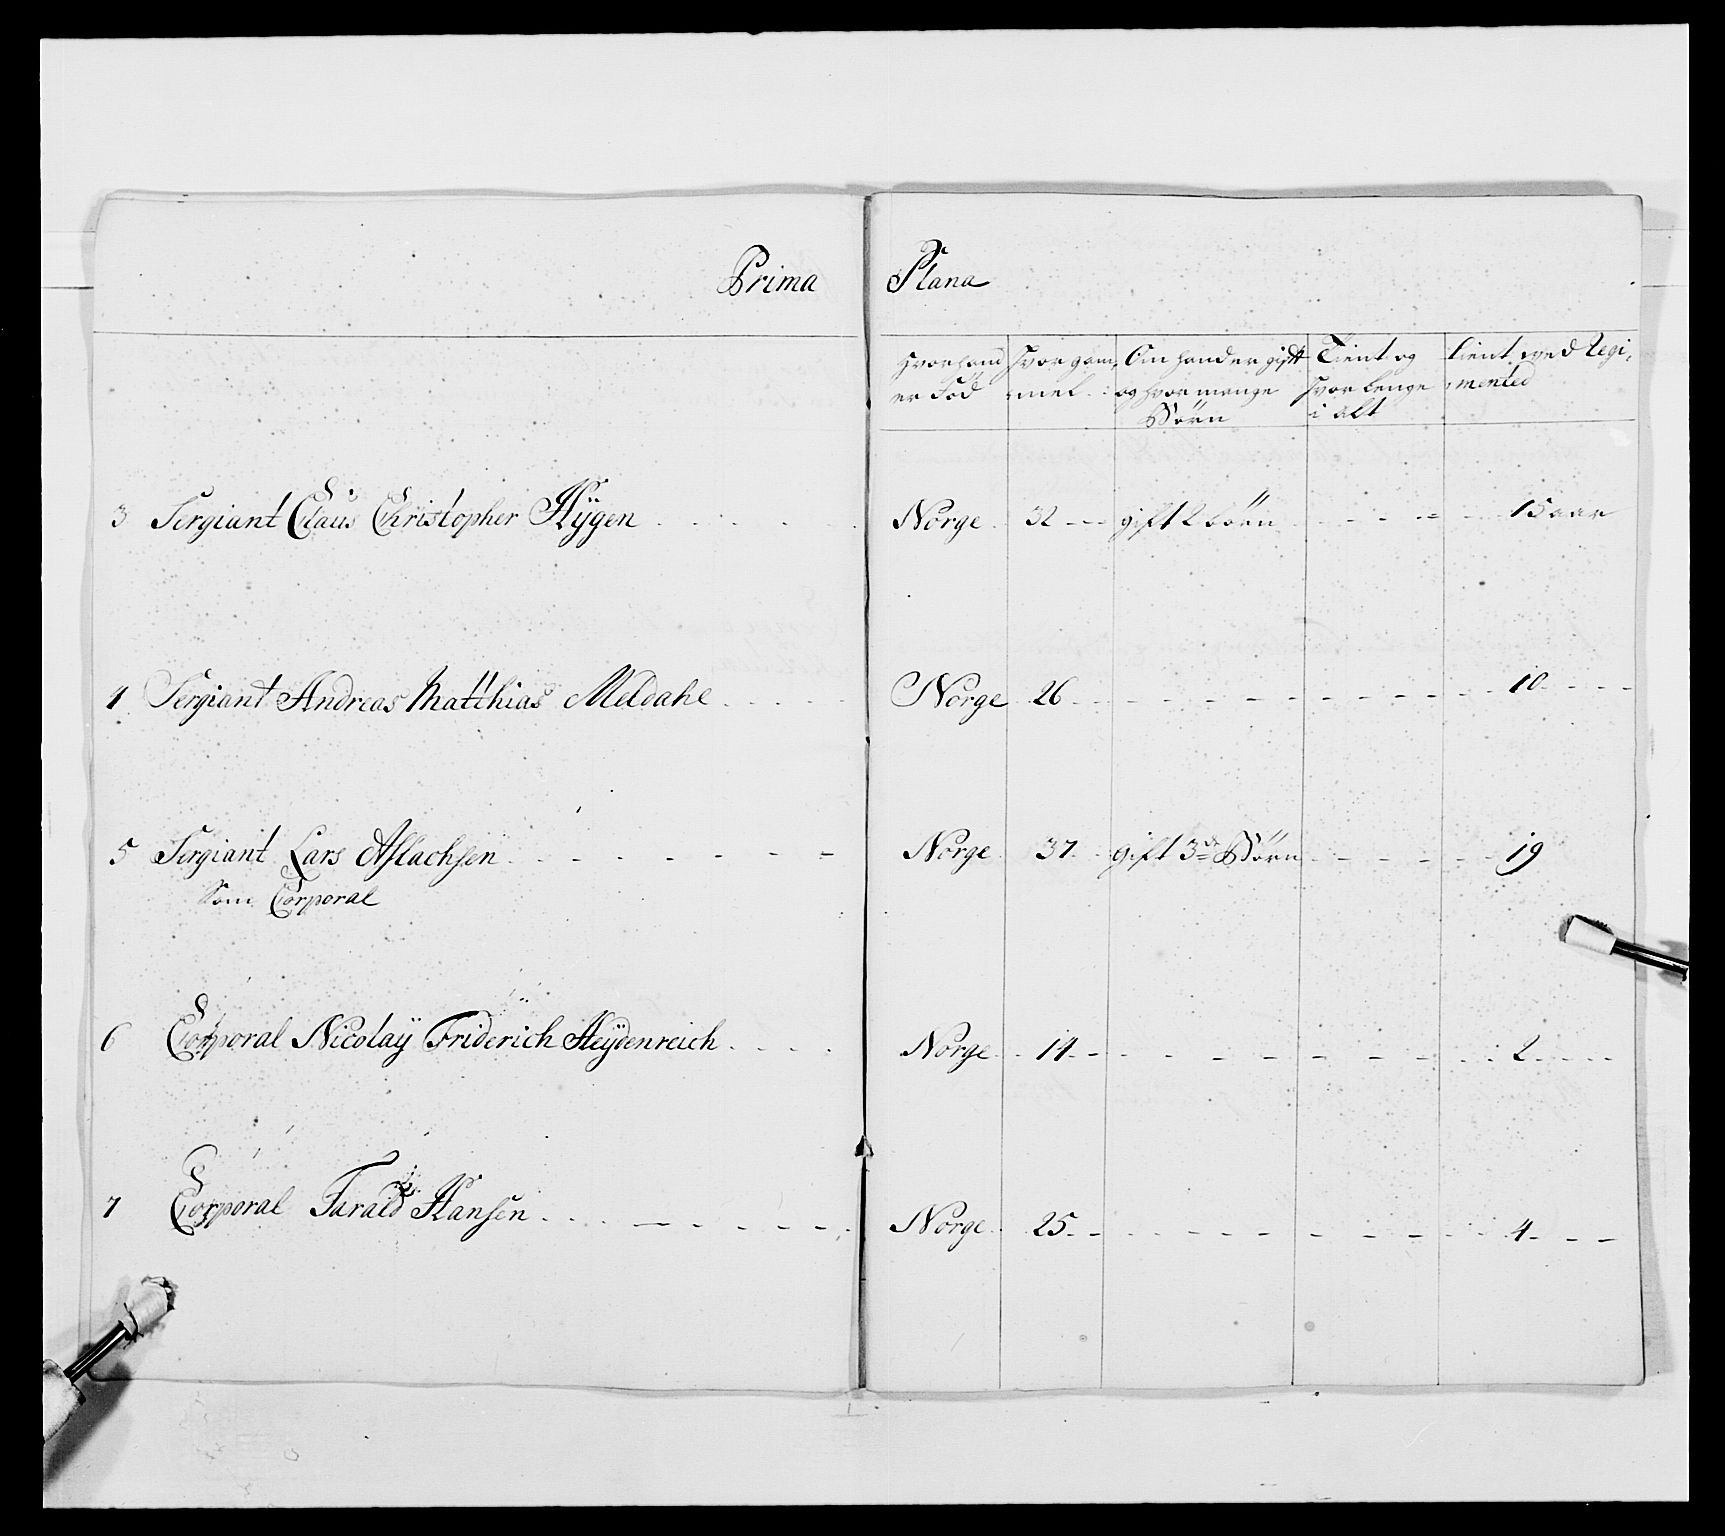 Prima Plana
Hvor hand er Föd
Hvor gam: :mel :
Om hand er gift og hvor mange Börn
Tient og hvor lenge i alt
tient ved Regi: :mented
3 Sergiant Claus Christopher Hÿgen Norge 32 gift 2 börn 15 aar
4 Sergiant Andreas Matthias Meldahl Norge 26 10
5 Sergiant Lars Aslachsen Norge 37 gift 3de Börn 19
Som Corporal
6 Corporal Nicolaÿ Friderich Heÿdenreich Norge 14 2
7 Corporal Tarald Hansen Norge 25 4